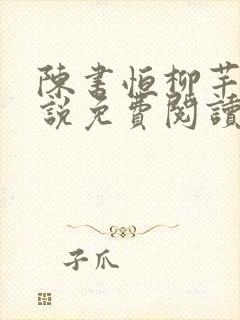 陳書恒柳芊
說免費閱讀
子爪